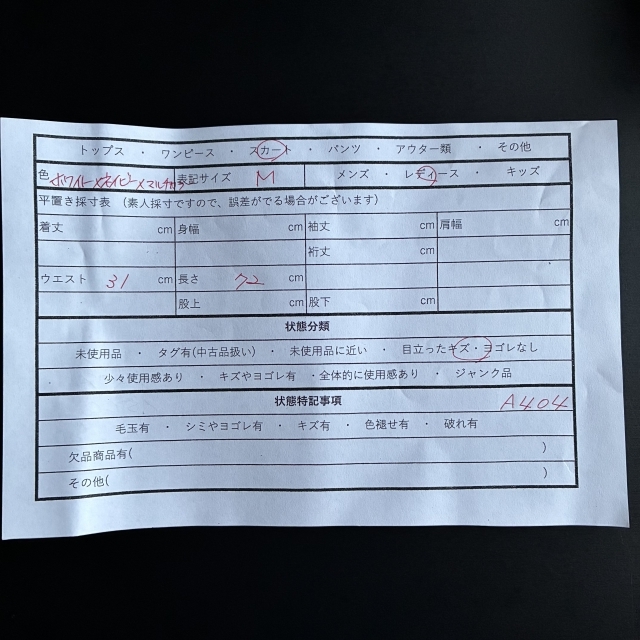 トップス ・ ワンピース ・ スカート ・ パンツ ・ アウター類 ・ その他
色 ホワイト×ネイビー×マルチカラー 表記サイズ M メンズ ・ レディース ・ キッズ
平置き採寸表 (素人採寸ですので、誤差がでる場合がございます)
着丈 cm 身幅 cm 袖丈 cm 肩幅 cm
裄丈 cm
ウエスト 31 cm 長さ 72 cm
股上 cm 股下 cm
状態分類
未使用品 ・ タグ有(中古品扱い) ・ 未使用品に近い ・ 目立ったキズ・ヨゴレなし
少々使用感あり ・ キズやヨゴレ有 ・全体的に使用感あり ・ ジャンク品
状態特記事項 A404
毛玉有 ・ シミやヨゴレ有 ・ キズ有 ・ 色褪せ有 ・ 破れ有
欠品商品有( )
その他( )